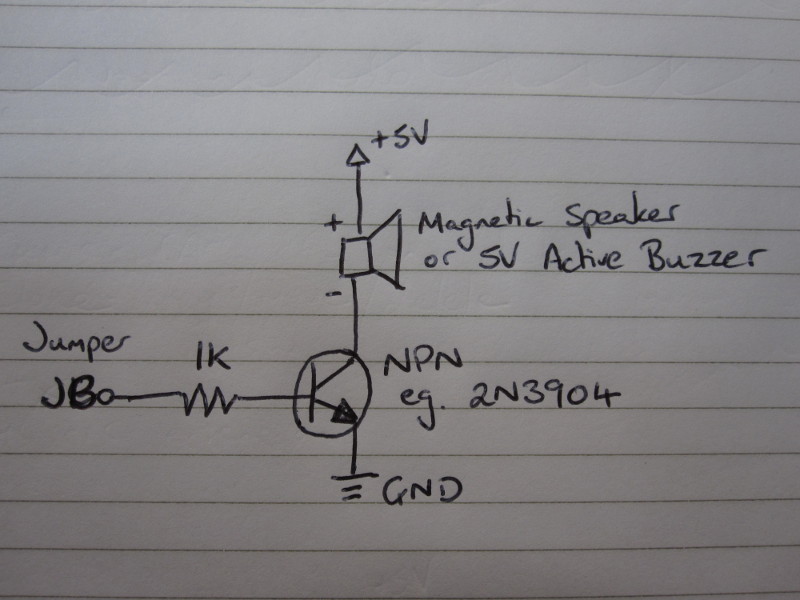 +5V
+
Magnetic Speaker
or 5V Active Buzzer
-
Jumper
JB
1K
NPN
eg. 2N3904
GND